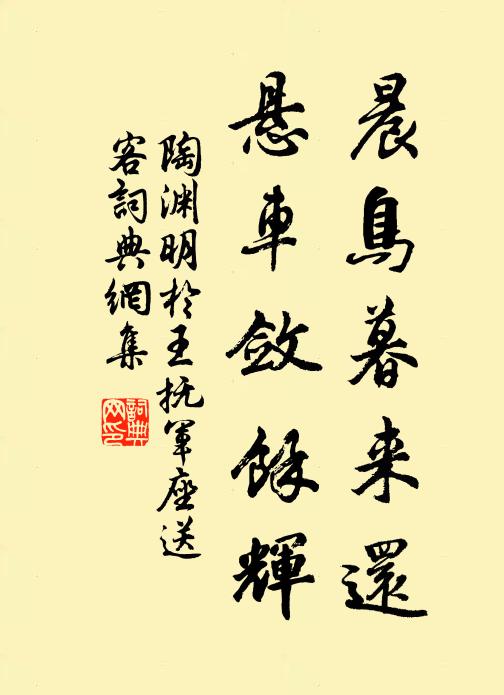 晨鳥暮来還
悬車斂餘輝
陶渊明於王抚軍座送
客詞典網集
詞典
网印